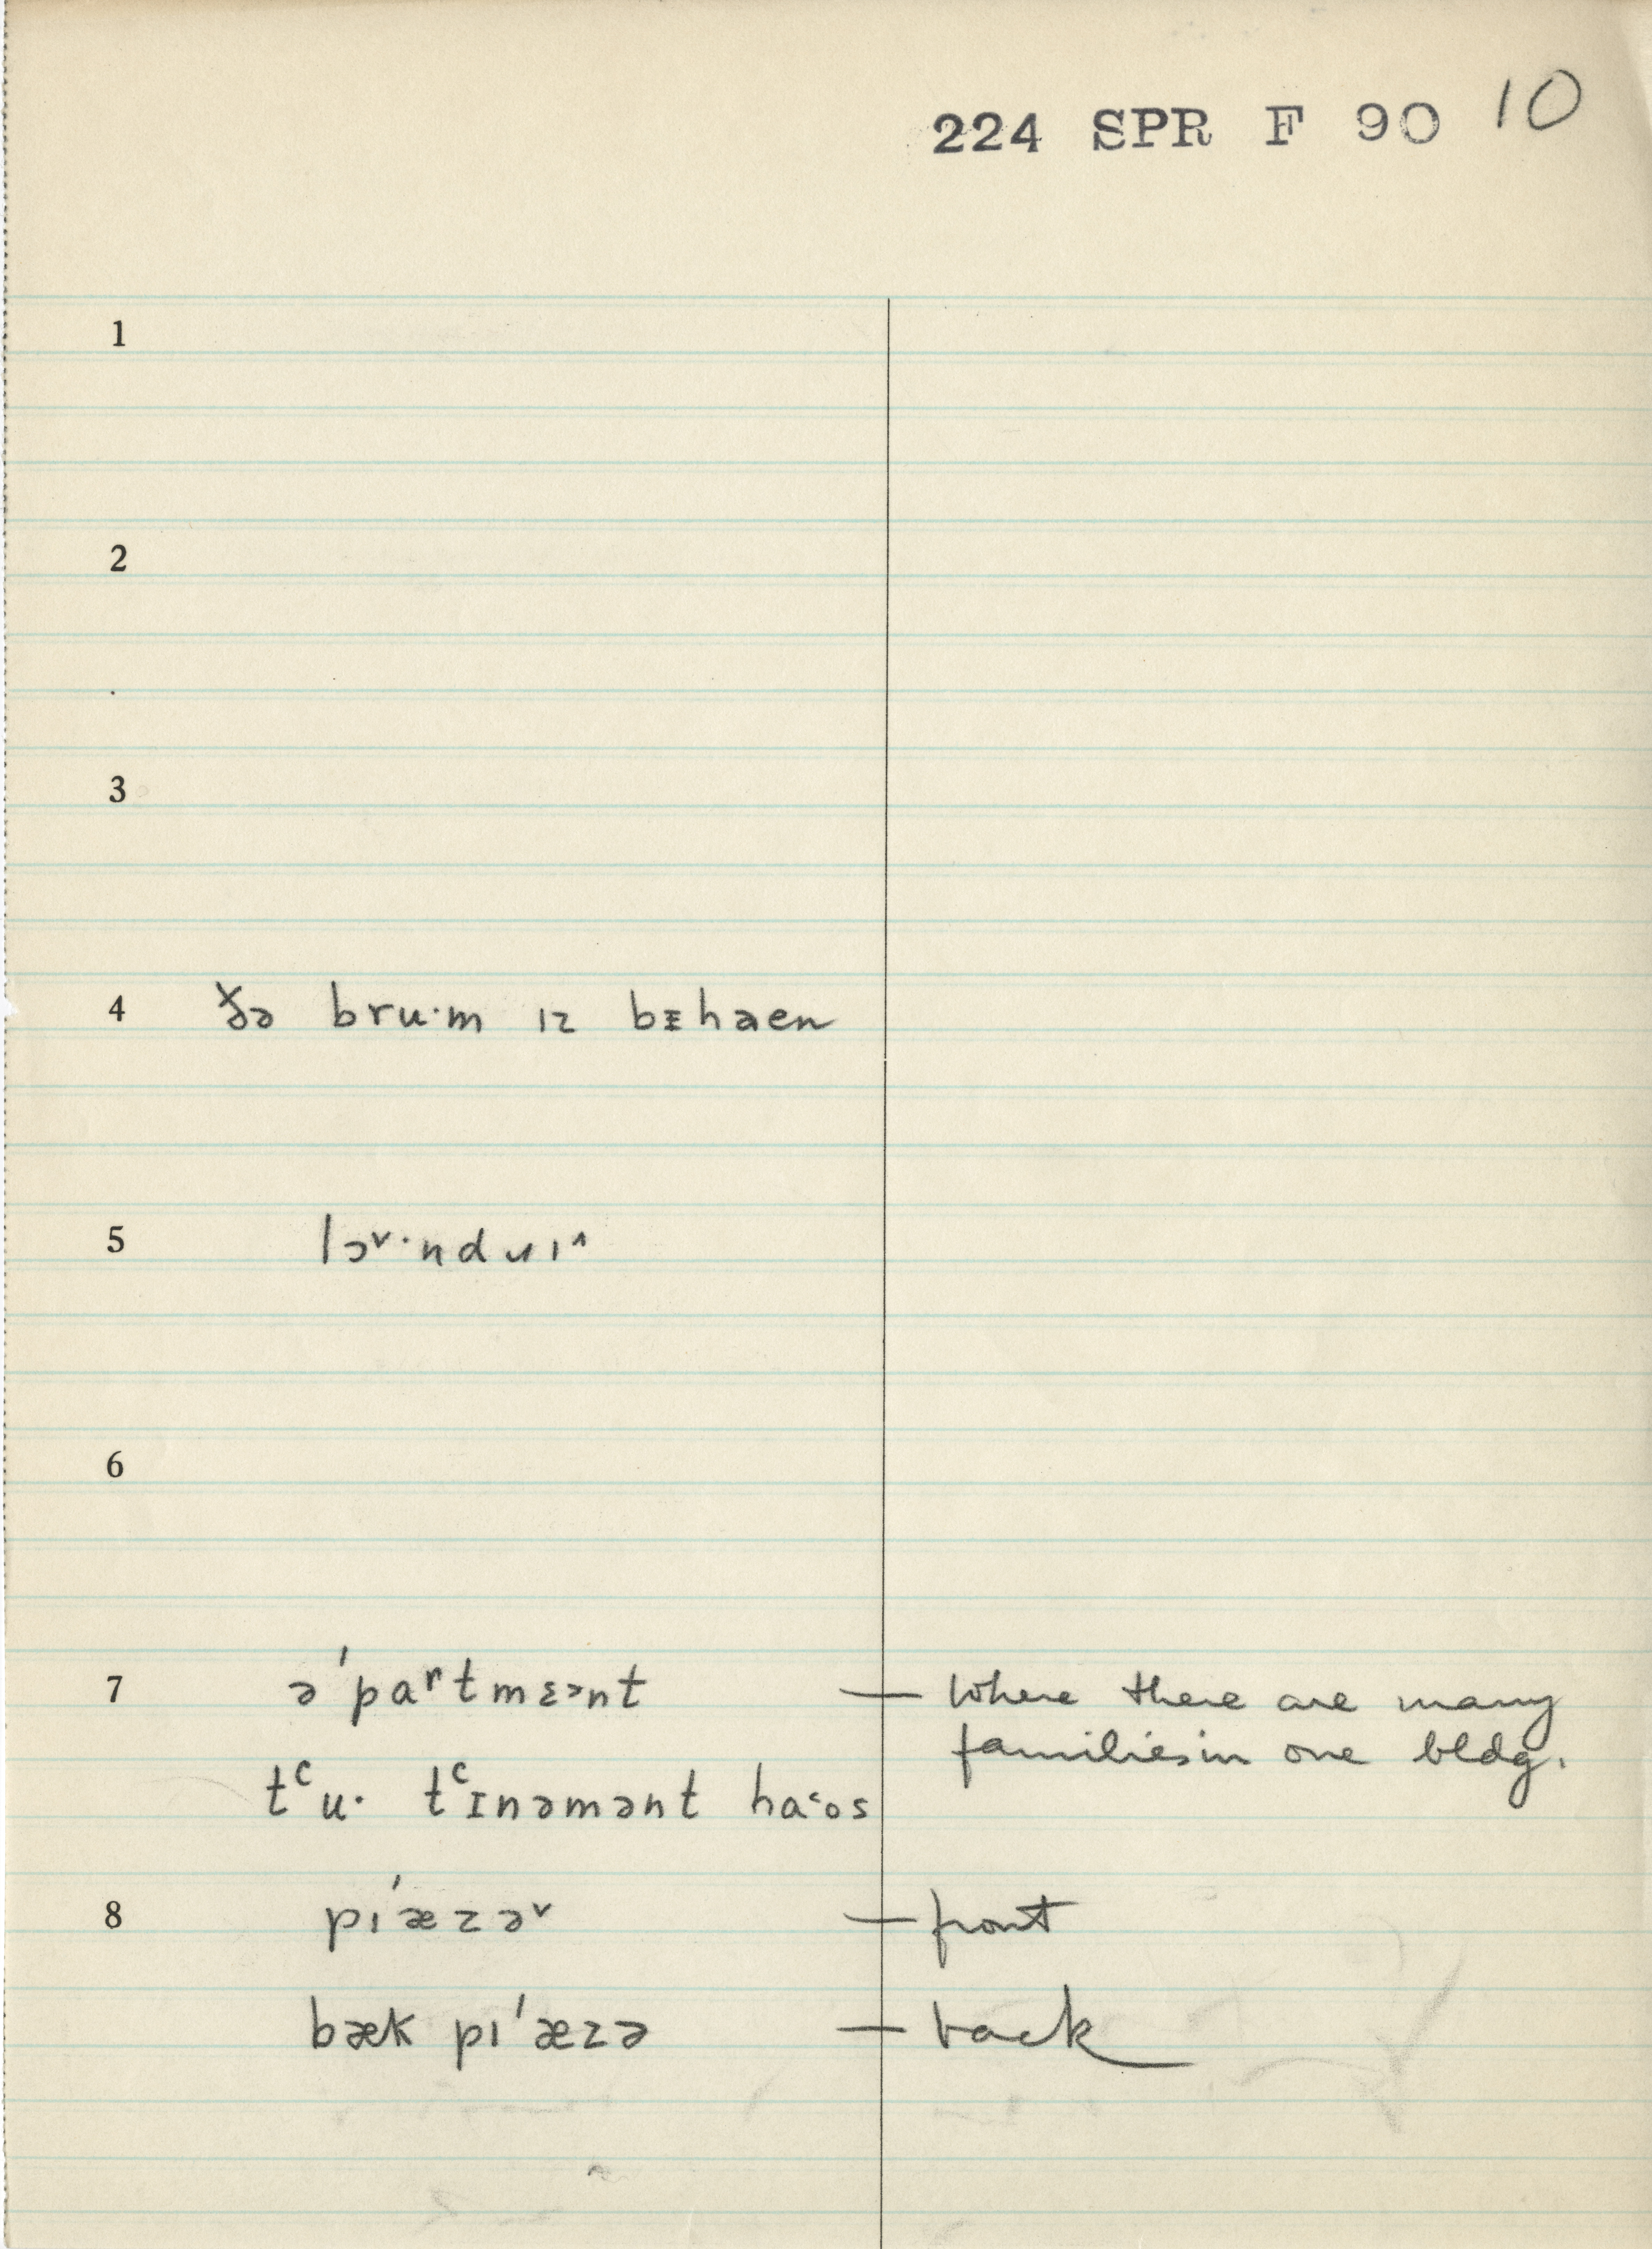 224 SPR F 90 10
1
2
3
4 ðə bru·m ɪz bᵻhaen
5 lɔˇ·ndrɪˆ
6
7 ə'paʳtmɛᵊnt — Where there are many
families in one bldg.
tᶜu· tᶜɪnəmənt ha˂·os
8 pɪ'æzəˇ — front
bæk pɪ'æzə — back